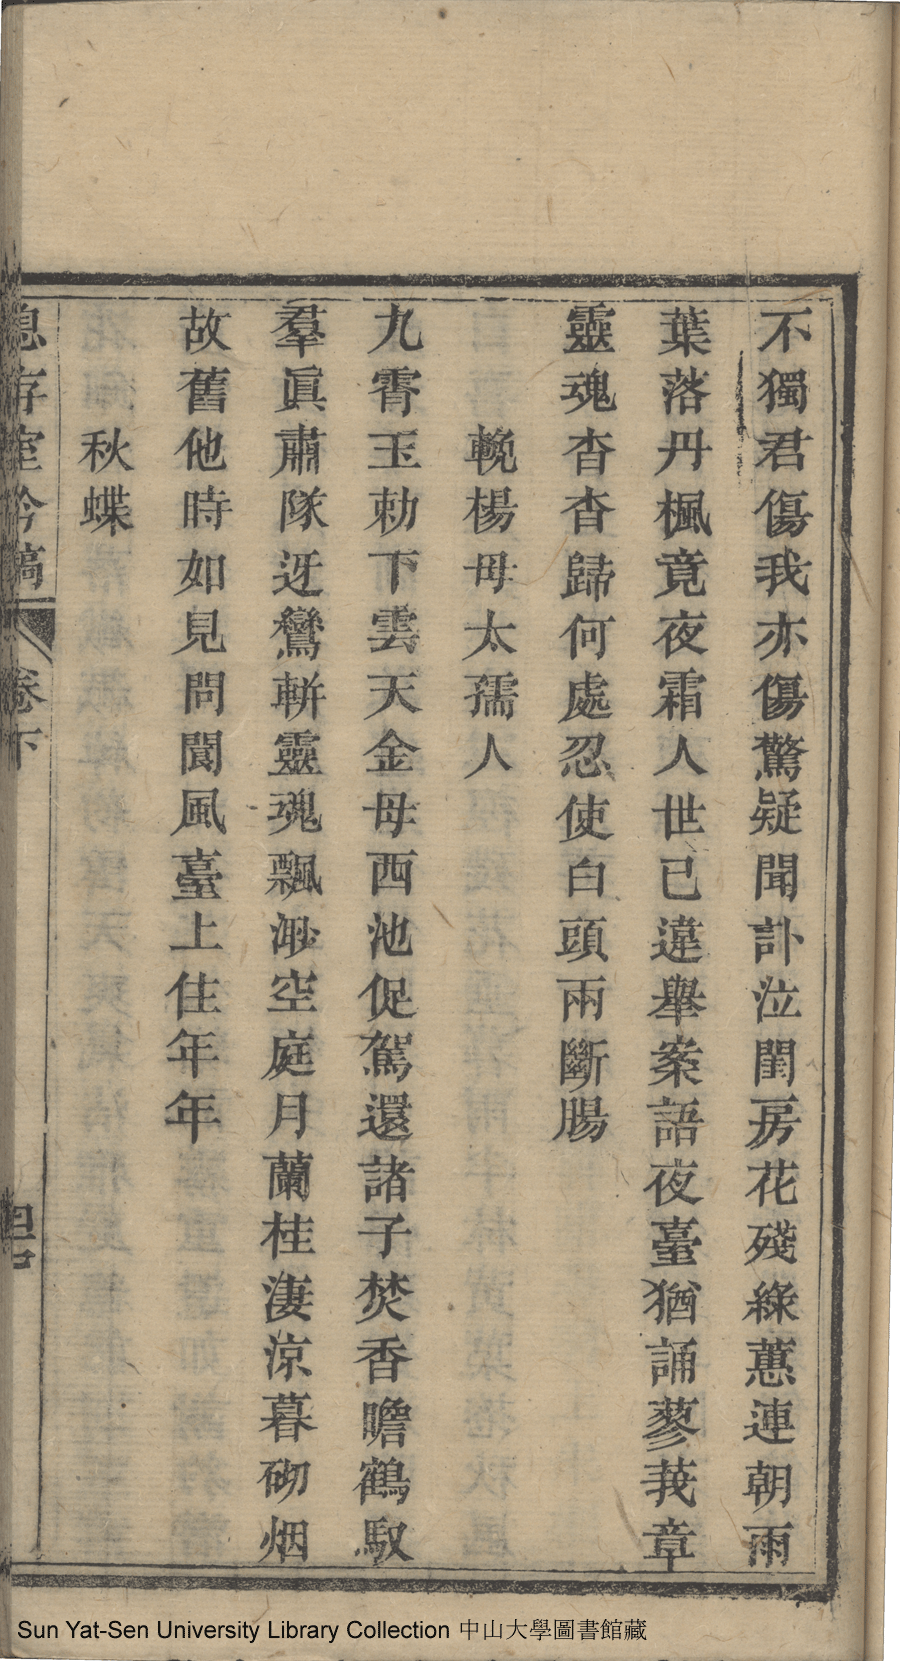 不獨君傷我亦傷驚疑聞訃泣閨房花殘綠蕙連朝雨
葉落丹楓竟夜霜人世已違舉案語夜臺猶誦蓼莪章
靈魂杳杳歸何處忍使白頭兩斷腸
輓楊母太孺人
九霄玉勅下雲天金母西池促駕還諸子焚香瞻鶴馭
羣眞肅隊迓鸞輧靈魂飄渺空庭月蘭桂淒涼暮砌烟
故舊他時如見問閬風臺上住年年
秋蝶
息存室吟稿 卷下 四七
Sun Yat-Sen University Library Collection 中山大學圖書館藏